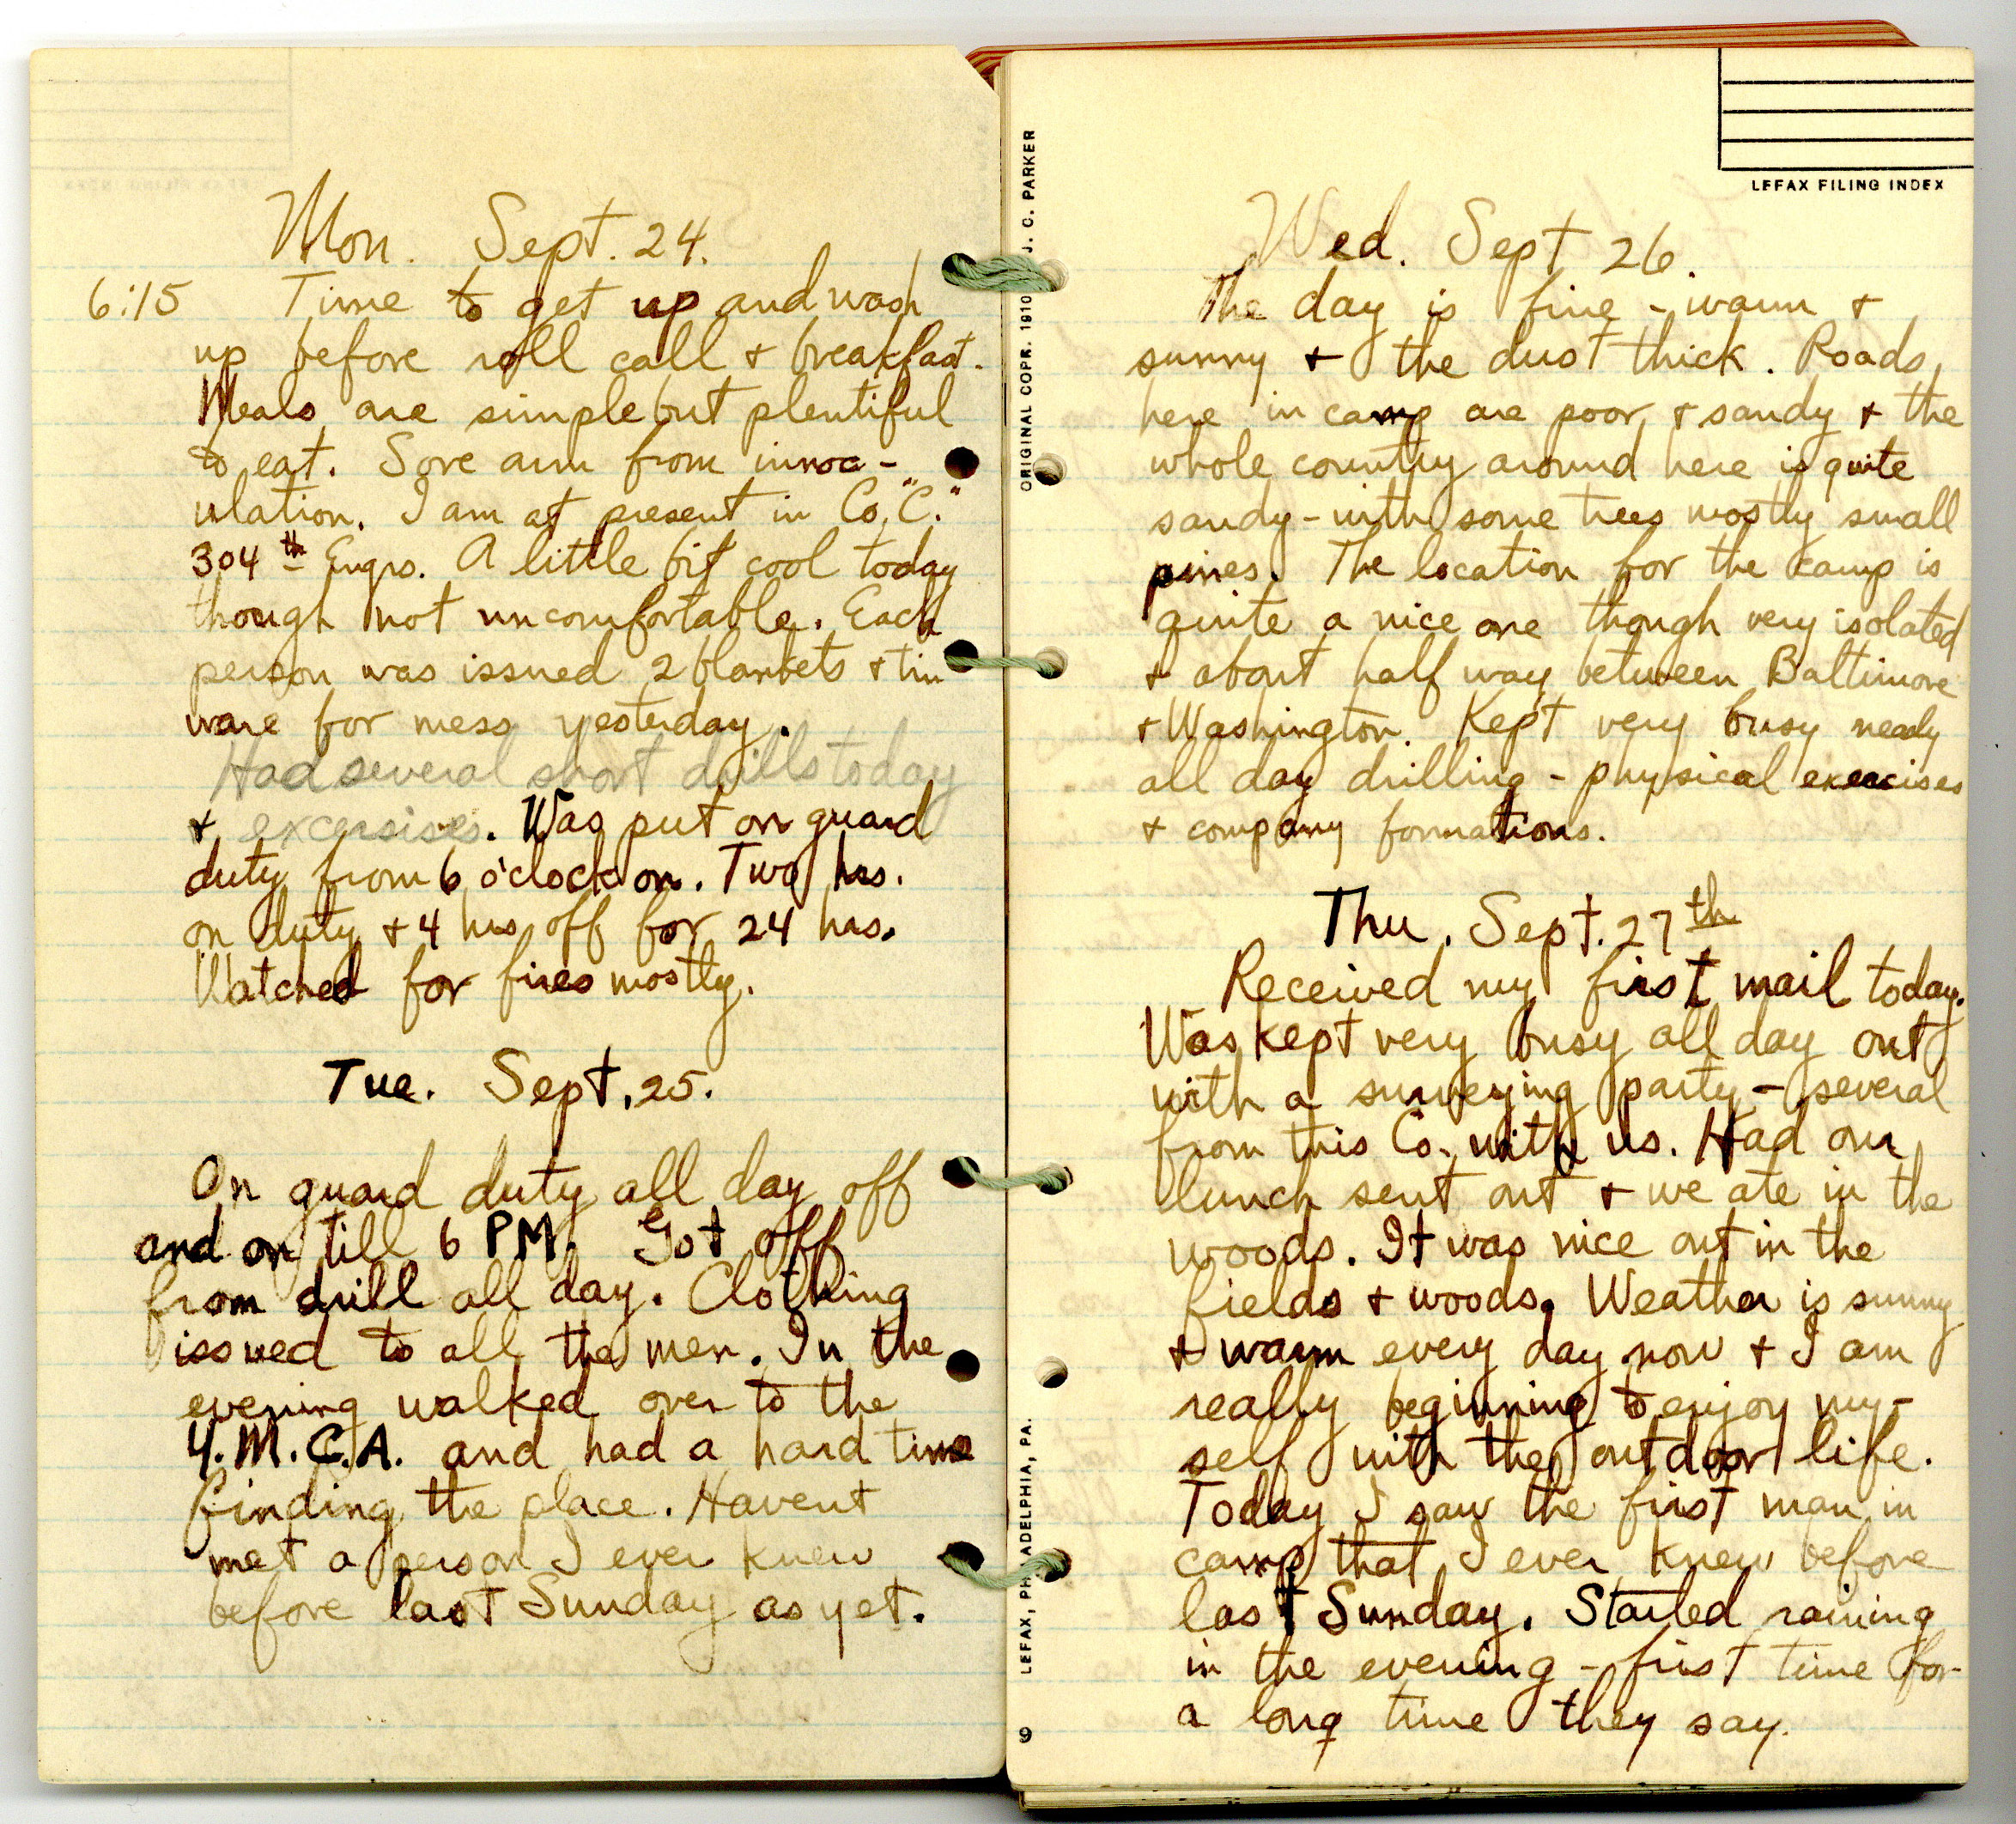 Mon. Sept. 24.
6:15 Time to get up and wash
up before roll call + breakfast.
Meals are simple but plentiful
to eat. Sore arm from innoc-
ulation. I am at present in Co. "C."
304th Engrs. A little bit cool today
though not uncomfortable. Each
person was issued 2 blankets + tin
ware for mess yesterday.
Had several short drills today
+ excersises. Was put on guard
duty from 6 o'clock on. Two hrs.
on duty + 4 hrs off for 24 hrs.
Watched for fires mostly.
Tue. Sept. 25.
On guard duty all day off
and on till 6 PM. Got off
from drill all day. Clothing
issued to all the men. In the
evening walked over to the
Y.M.C.A. and had a hard time
finding the place. Havent
met a person I ever knew
before last Sunday as yet.
LEFAX FILING INDEX
ORIGINAL COPR. 1910 J. C. PARKER
LEFAX, PHILADELPHIA, PA.
9
Wed. Sept 26.
The day is fine - warm +
sunny + the dust thick. Roads
here in camp are poor + sandy + the
whole country around here is quite
sandy - with some trees mostly small
pines. The location for the camp is
quite a nice one though very isolated
+ about half way between Baltimore
+ Washington. Kept very busy nearly
all day drilling - physical exercises
+ company formations.
Thu. Sept. 27th
Received my first mail today.
Was kept very busy all day out
with a surveying party - several
from this Co. with us. Had our
lunch sent out + we ate in the
woods. It was nice out in the
fields + woods. Weather is sunny
+ warm every day now + I am
really beginning to enjoy my-
self with the outdoor life.
Today I saw the first man in
camp that I ever knew before
last Sunday. Started raining
in the evening - first time for
a long time they say.